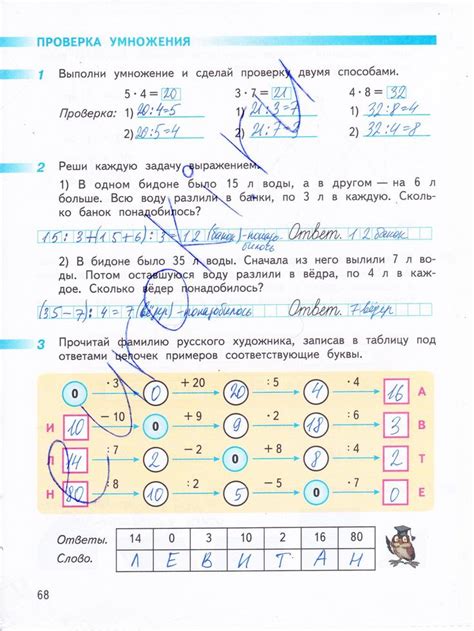 ПРОВЕРКА УМНОЖЕНИЯ
1 Выполни умножение и сделай проверку двумя способами.
5 · 4 = 20 3 · 7 = 21 4 · 8 = 32
Проверка: 1) 20:4=5 1) 21:3=7 1) 32:8=4
2) 20:5=4 2) 21:7=3 2) 32:4=8
2 Реши каждую задачу выражением.
1) В одном бидоне было 15 л воды, а в другом — на 6 л
больше. Всю воду разлили в банки, по 3 л в каждую. Сколь-
ко банок понадобилось?
15:3+(15+6):3=12 (банок)-понадо- Ответ. 12 банок.
билось
2) В бидоне было 35 л воды. Сначала из него вылили 7 л во-
ды. Потом оставшуюся воду разлили в вёдра, по 4 л в каж-
дое. Сколько вёдер понадобилось?
(35-7):4=7 (вёдер)-понадобилось Ответ. 7 вёдер
3 Прочитай фамилию русского художника, записав в таблицу под
ответами цепочек примеров соответствующие буквы.
0 · 3 0 + 20 20 : 5 4 · 4 16 А
И 10 − 10 0 + 9 9 · 2 18 : 6 3 В
Л 14 : 7 2 − 2 0 + 8 8 : 4 2 Т
Н 80 : 8 10 : 2 5 − 5 0 · 7 0 Е
Ответы. 14 0 3 10 2 16 80
Слово. Л Е В И Т А Н
68